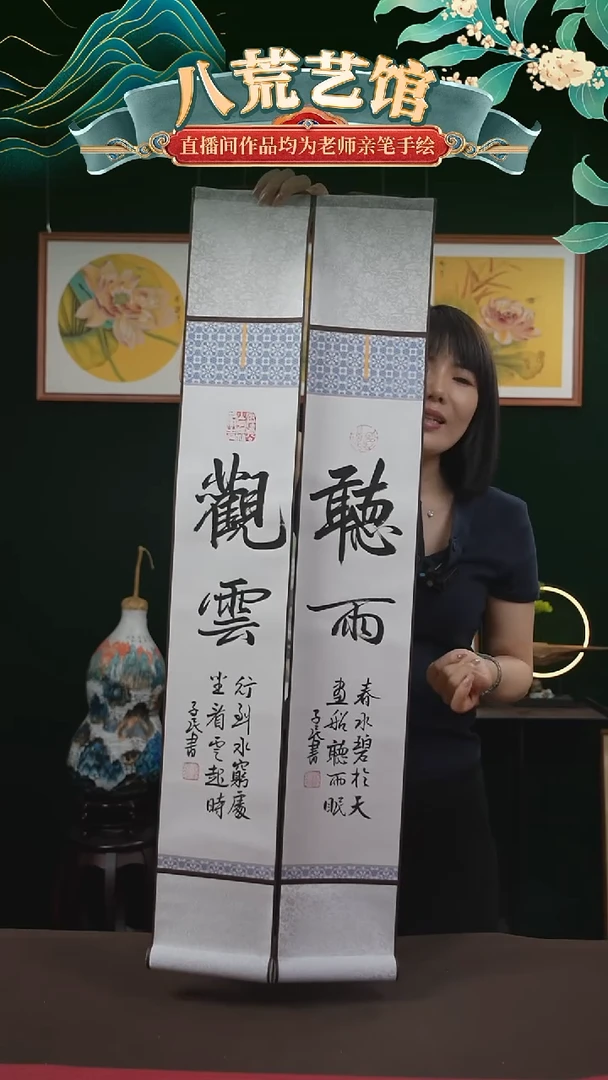 八荒艺馆
直播间作品均为老师亲笔手绘
聽雨
春水碧於天
畫船聽雨眠
子民書
觀雲
行到水窮處
坐看雲起時
子民書